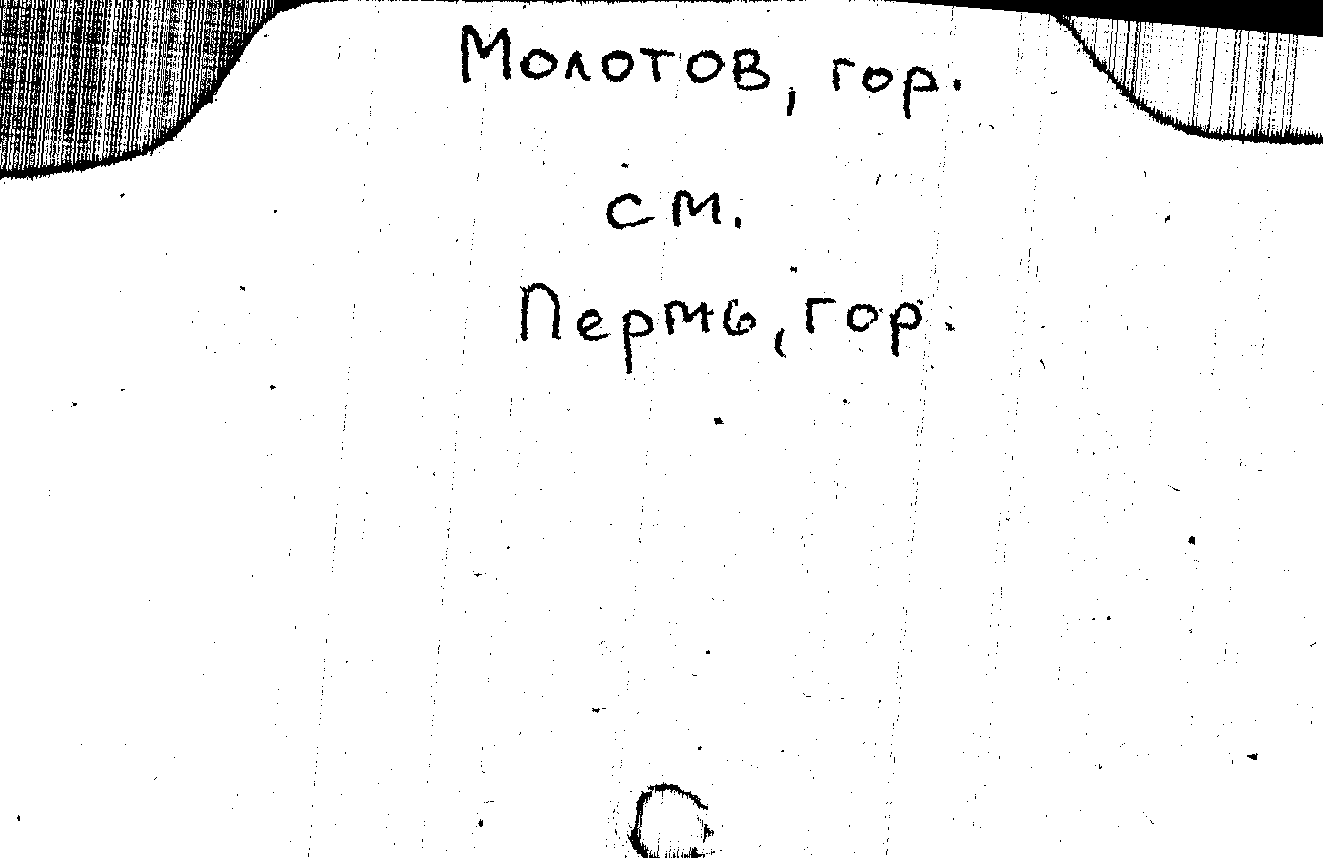 Молотов, гор.
см.
Пермь, гор.